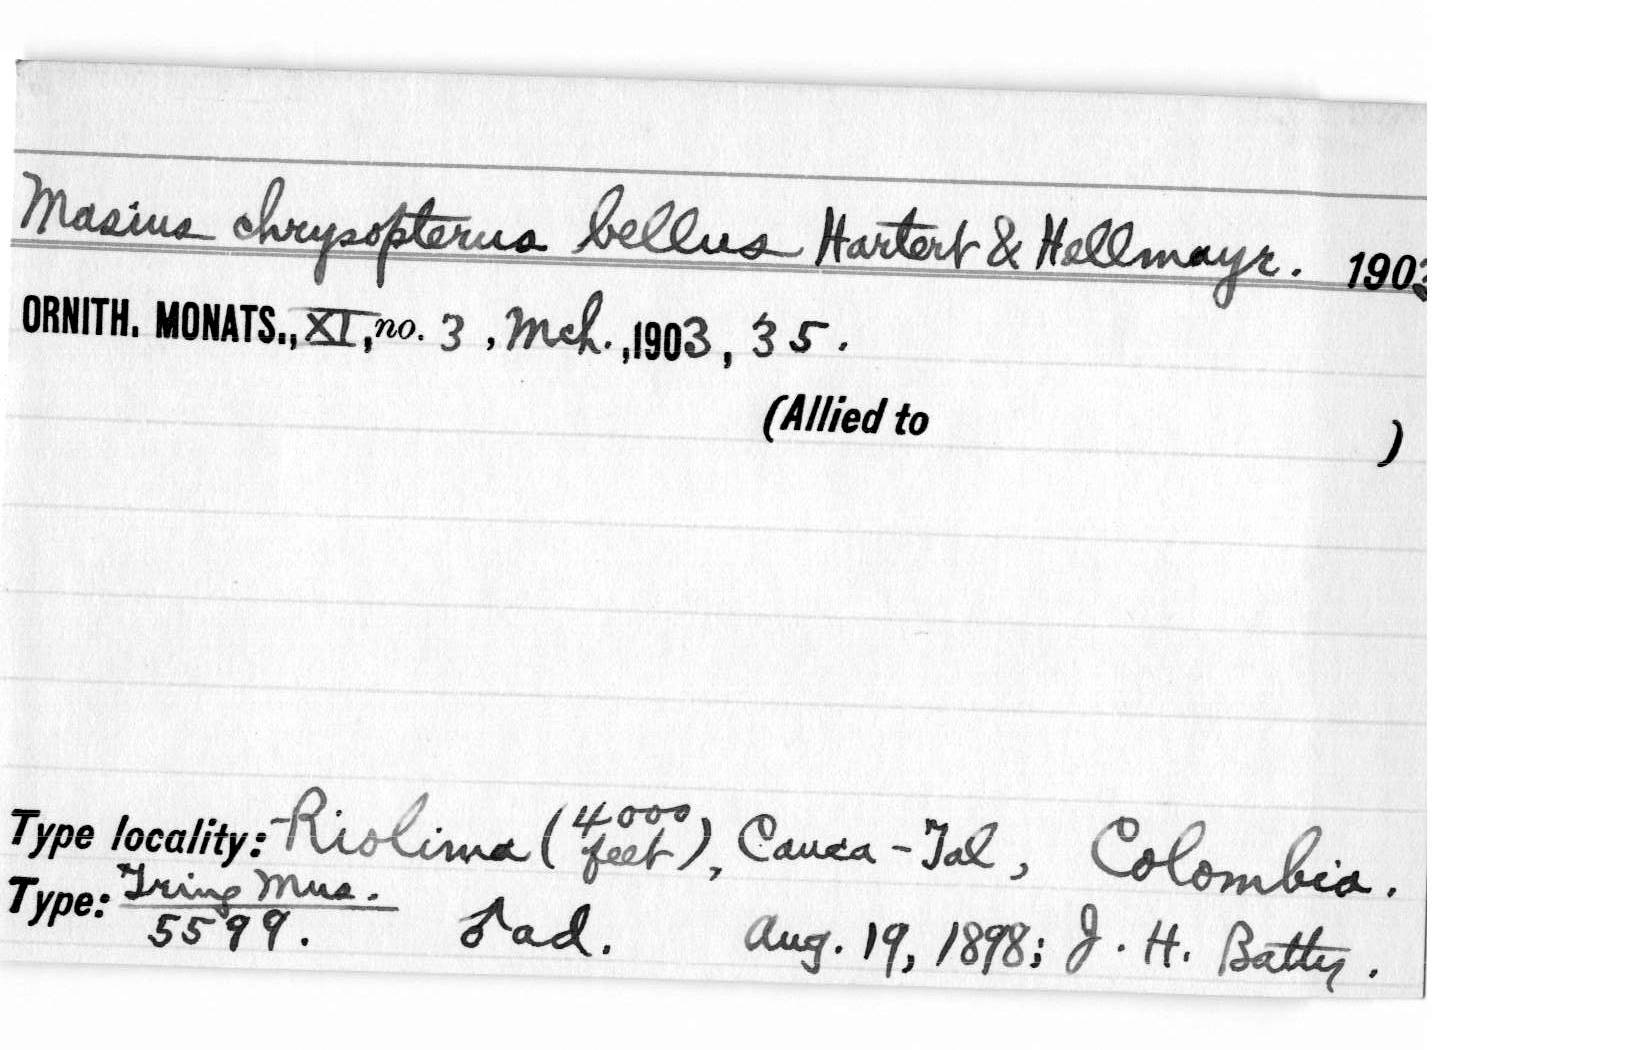 Masius chrysopterus bellus Hartert & Hellmayr. 1903
ORNITH. MONATS., XI, no. 3, Mch., 1903, 35.
(Allied to )
Type locality: Riolima (4000 feet), Cauca-Tal, Colombia.
Type: Tring Mus. 5599. ♂ ad. Aug. 19, 1898; J. H. Batty.